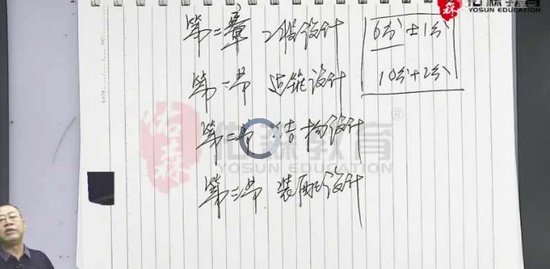 佑森教育®
YOSUN EDUCATION
第二章 工程设计
6分±1分
第一节 建筑设计
10分+2分
第二节 结构设计
佑森教育®
YOSUN EDUCATION
第三节 装配设计